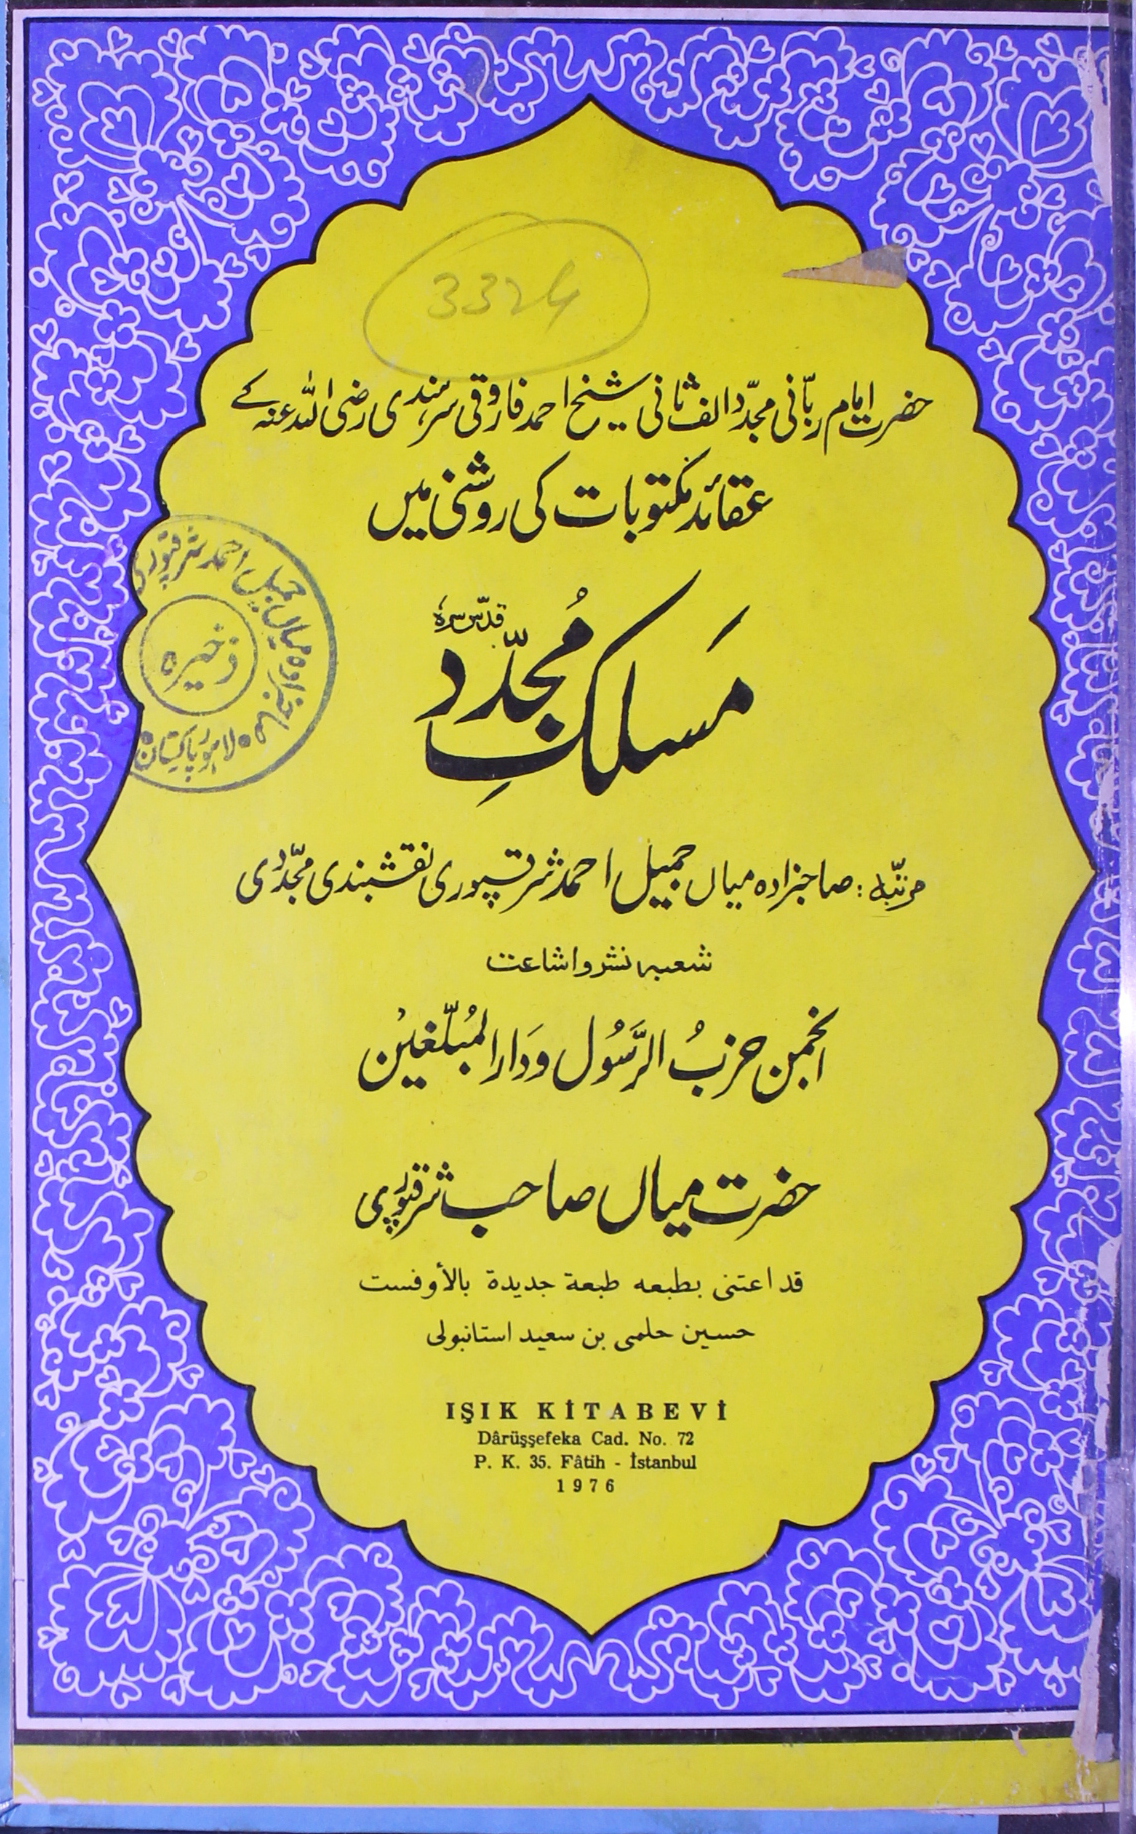 3324
حضرت امام ربّانی مجدّد الف ثانی شیخ احمد فاروقی سرہندی رضی اللہ عنہ کے
عقائد مکتوبات کی روشنی میں
قدّس سرہٗ
مَسلکِ مُجدّد
صاحبزادہ میاں جمیل احمد شرقپوری
ذخیرہ
لاہور پاکستان
مرتّبہ: صاحبزادہ میاں جمیل احمد شرقپوری نقشبندی مجدّدی
شعبہ نشر و اشاعت
انجمن حزبُ الرَّسُول و دَار المُبلّغیْن
حضرت میاں صاحب شرقپوری
قد اعتنى بطبعه طبعة جديدة بالأوفست
حسين حلمى بن سعيد استانبولى
IŞIK KİTABEVİ
Dârüşşefeka Cad. No. 72
P. K. 35. Fâtih - İstanbul
1976